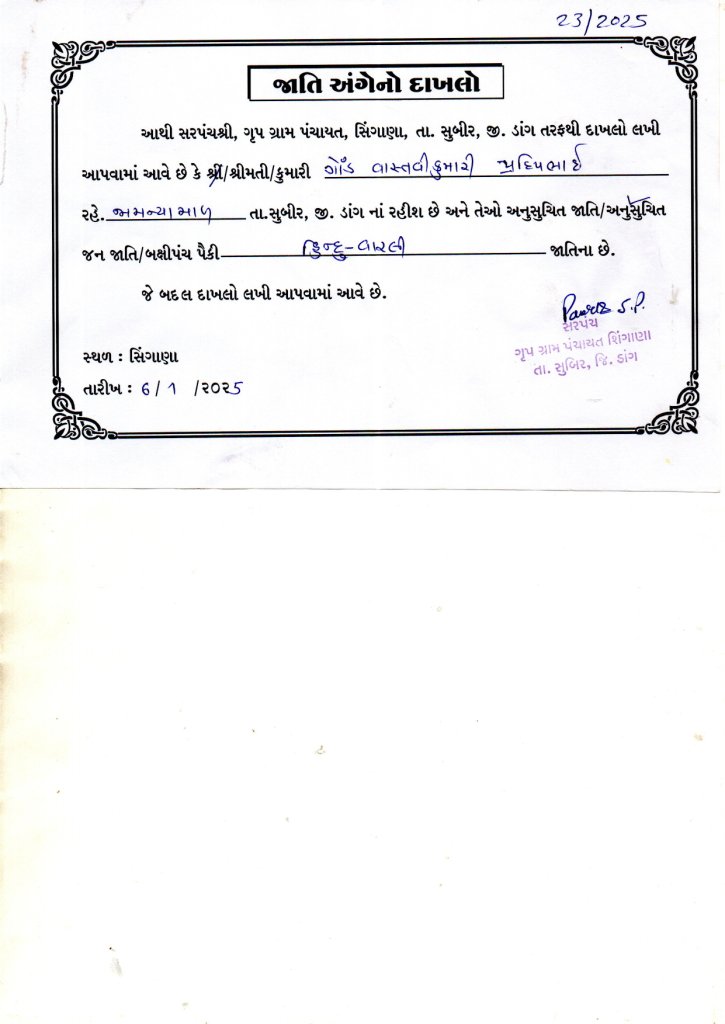 23/2025
જાતિ અંગેનો દાખલો
આથી સરપંચશ્રી, ગૃપ ગ્રામ પંચાયત, સિંગાણા, તા. સુબીર, જી. ડાંગ તરફથી દાખલો લખી
આપવામાં આવે છે કે શ્રી/શ્રીમતી/કુમારી ગોંડ વાસ્તવીકુમારી પ્રદિપભાઈ
રહે. જામન્યામાળ તા.સુબીર, જી. ડાંગ નાં રહીશ છે અને તેઓ અનુસુચિત જાતિ/અનુસુચિત
જન જાતિ/બક્ષીપંચ પૈકી હિન્દુ-વારલી જાતિના છે.
જે બદલ દાખલો લખી આપવામાં આવે છે.
S.P.
સરપંચ
ગૃપ ગ્રામ પંચાયત શિંગાણા
તા. સુબિર, જિ. ડાંગ
સ્થળ : સિંગાણા
તારીખ : 6/1/૨૦૨5